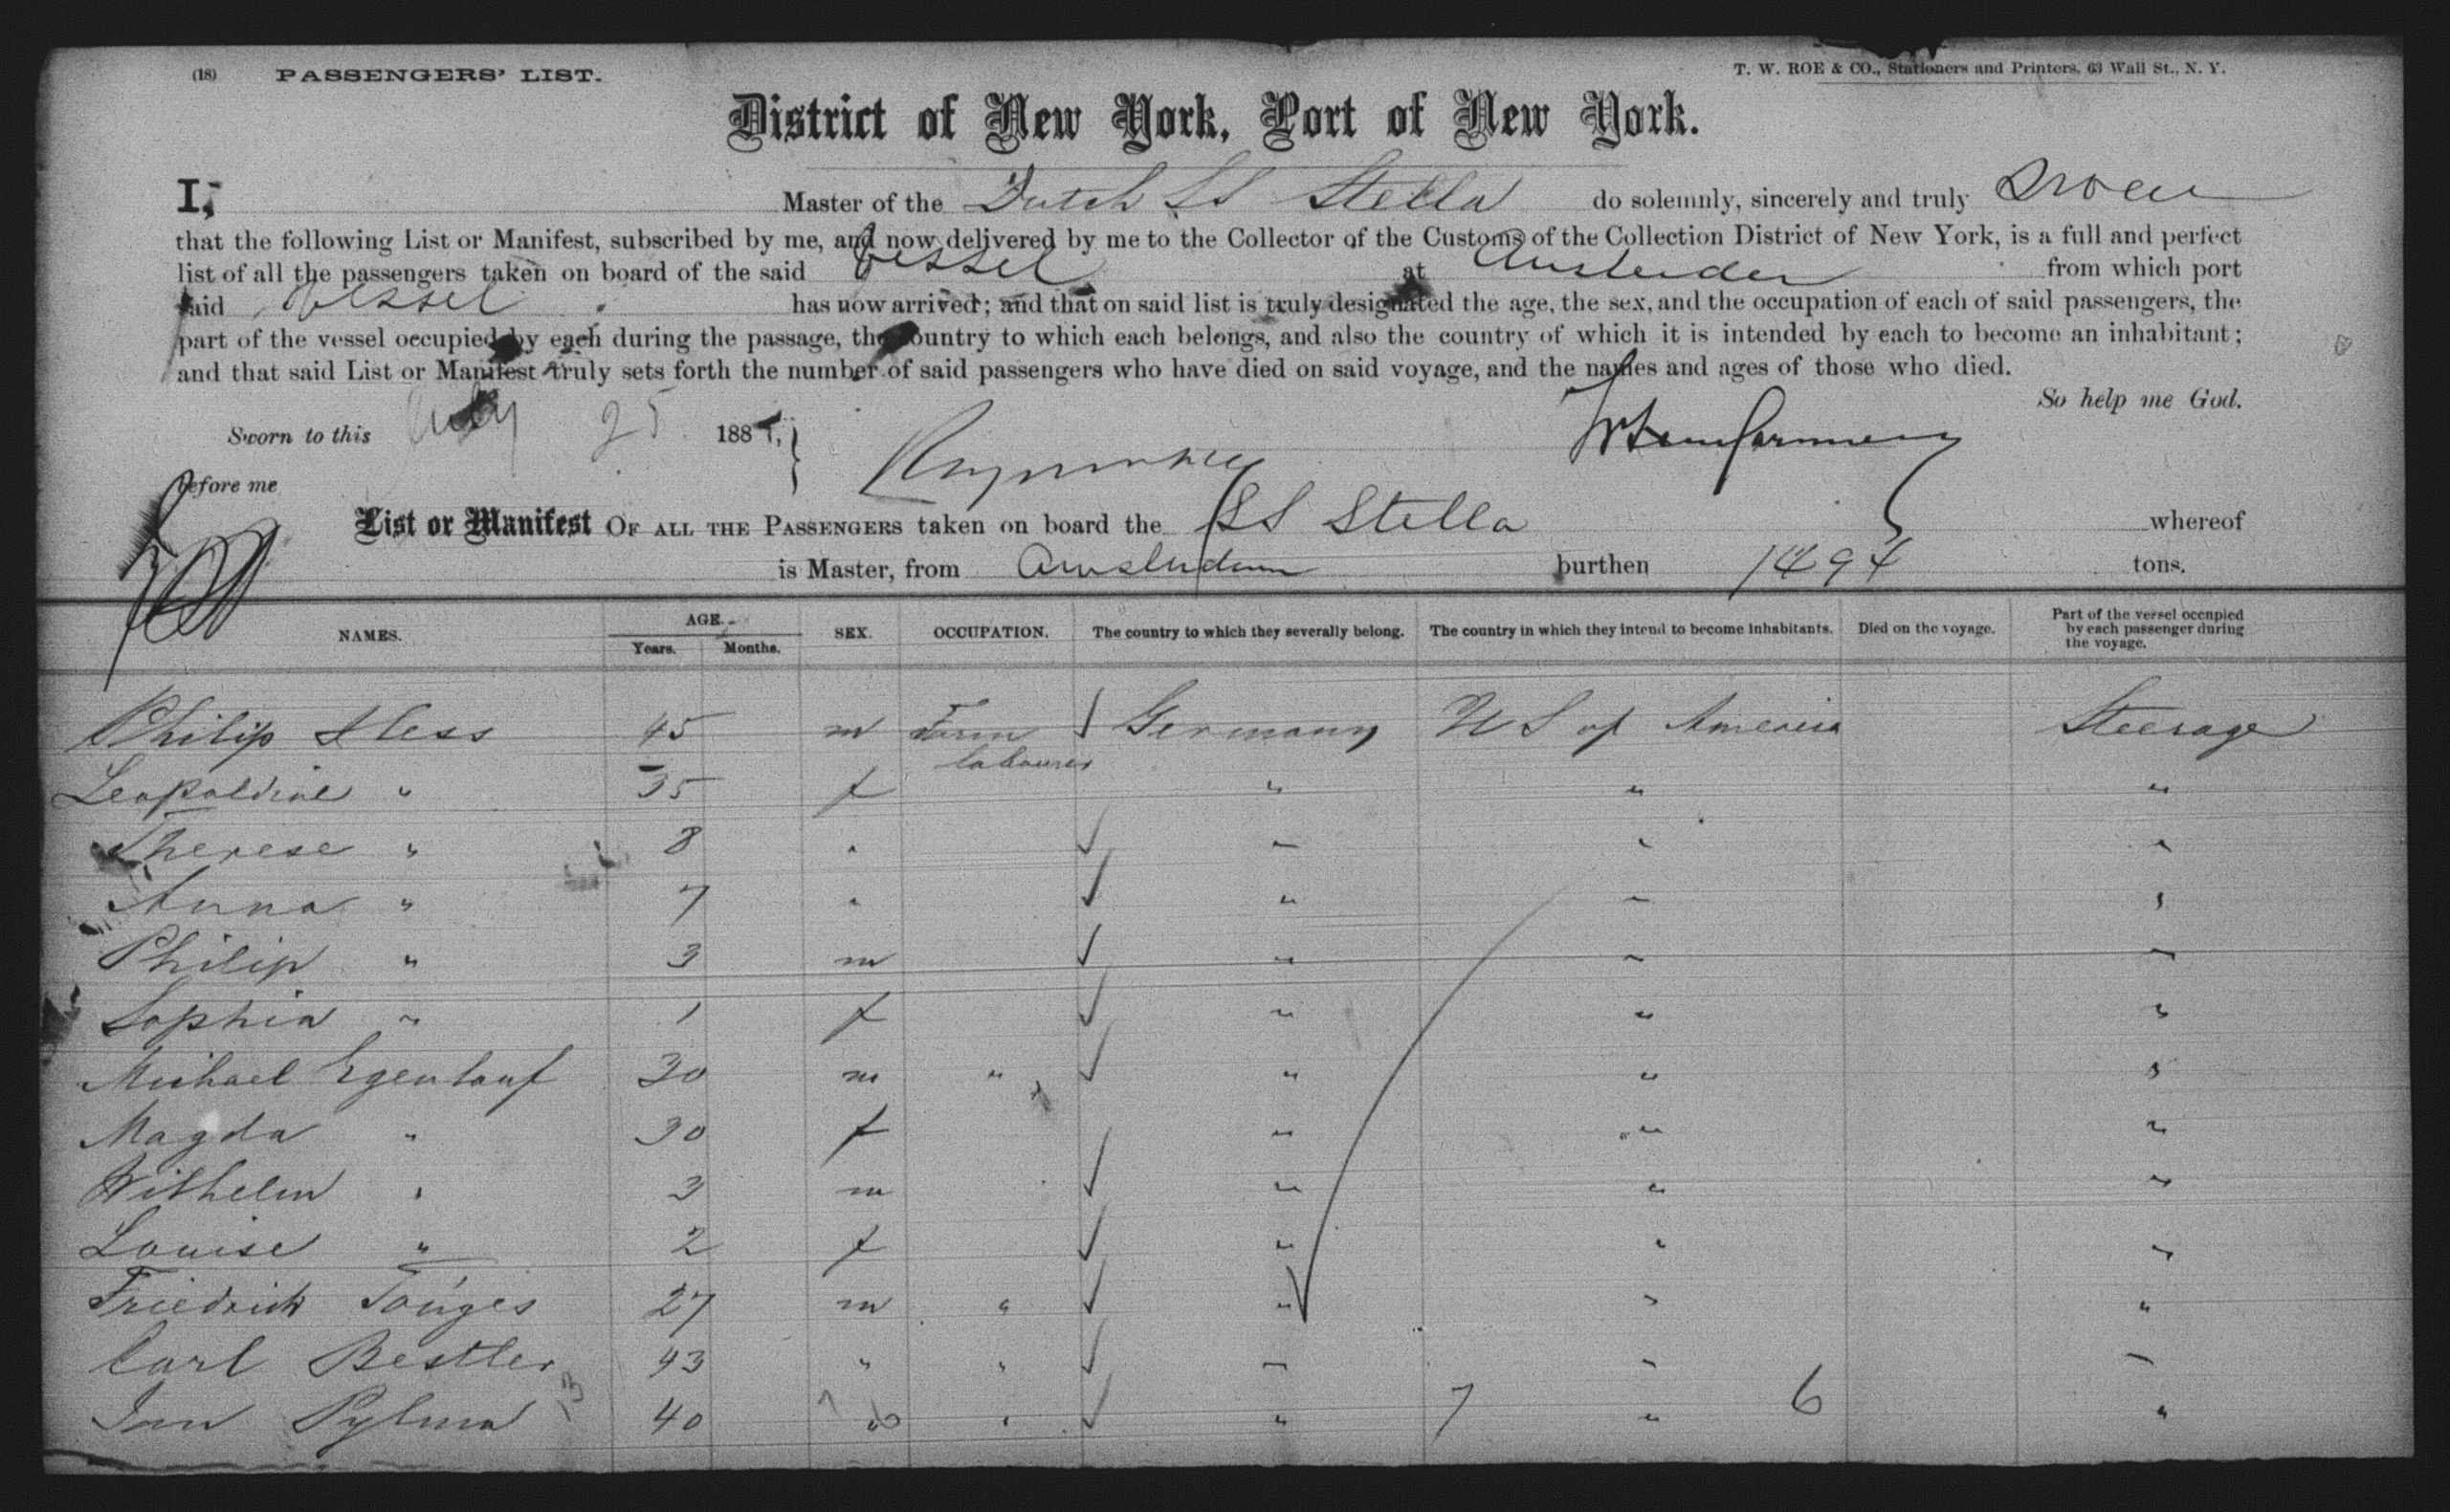 (18) PASSENGERS' LIST. T. W. ROE & CO., Stationers and Printers, 63 Wall St., N. Y.
District of New York, Port of New York.
I, Master of the Dutch SS Stella do solemnly, sincerely and truly
that the following List or Manifest, subscribed by me, and now delivered by me to the Collector of the Customs of the Collection District of New York, is a full and perfect
list of all the passengers taken on board of the said Vessel at Amsterdam from which port
said Vessel has now arrived; and that on said list is truly designated the age, the sex, and the occupation of each of said passengers, the
part of the vessel occupied by each during the passage, the country to which each belongs, and also the country of which it is intended by each to become an inhabitant;
and that said List or Manifest truly sets forth the number of said passengers who have died on said voyage, and the names and ages of those who died.
So help me God.
Sworn to this July 25 188
before me
List or Manifest OF ALL THE PASSENGERS taken on board the SS Stella whereof
is Master, from Amsterdam burthen 1494 tons.
NAMES. AGE. Years. Months. SEX. OCCUPATION. The country to which they severally belong. The country in which they intend to become inhabitants. Died on the voyage. Part of the vessel occupied by each passenger during the voyage.
Philip Hess 45 m Farm labourer Germany U S of America Steerage
Leopoldine " 35 f " " "
Therese " 8 " " " "
Anna " 7 " " " "
Philip " 3 m " " "
Sophia " 1 f " " "
Michael Egenlauf 30 m " " " "
Magda " 30 f " " "
Wilhelm " 3 m " " "
Louise " 2 f " " "
Friedrich Tonges 27 m " " " "
Carl Bestler 43 " " " " "
Jan Pylma 40 " " 7 " 6 "